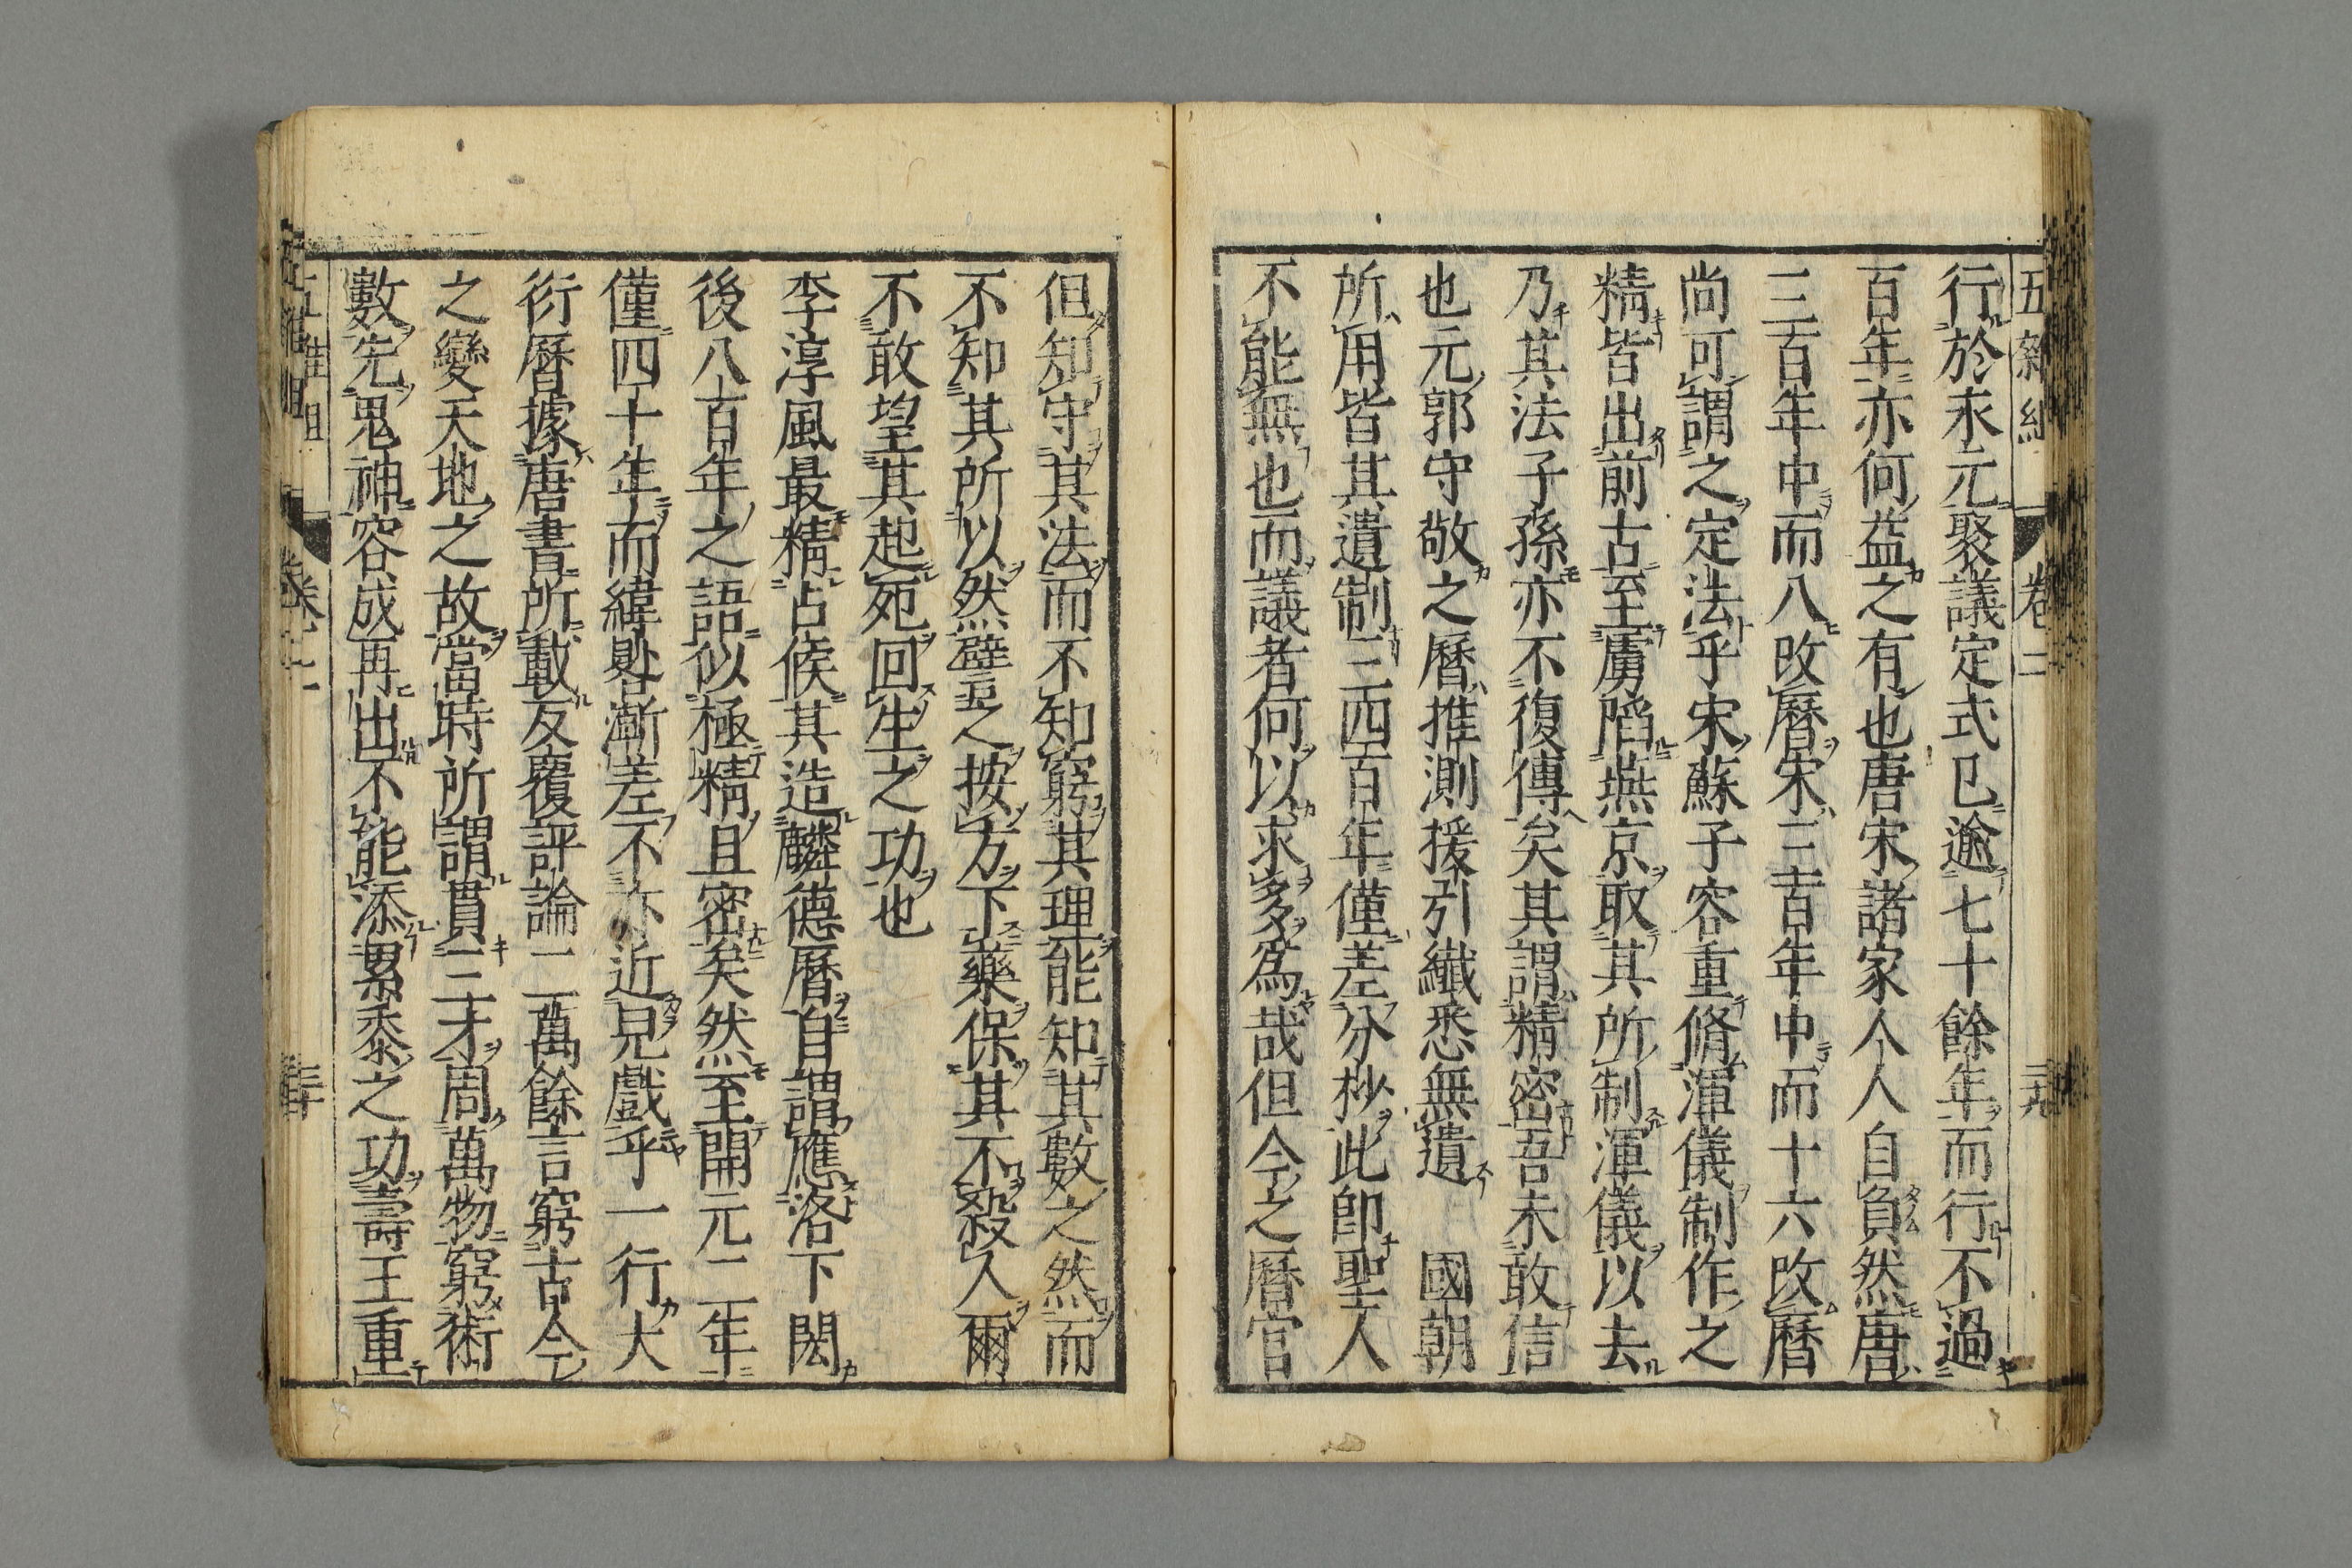 五雜組 卷二 二十九
行於永元聚議定式已逾七十餘年而行不過
百年亦何益之有也唐宋諸家人人自負然唐
三百年中而八改曆宋三百年中而十六改曆
尚可謂之定法乎宋蘇子容重脩渾儀制作之
精皆出前古至虜陷燕京取其所制渾儀以去
乃其法子孫亦不復傳矣其謂精密吾未敢信
也元郭守敬之曆推測援引纖悉無遺 國朝
所用皆其遺制三四百年僅差分秒此卽聖人
不能無也而議者何以求多爲哉但今之曆官
但知守其法而不知窮其理能知其數之然而
不知其所以然譬之按方下藥保其不殺人爾
不敢望其起死回生之功也
李淳風最精占候其造麟德曆自謂應洛下閎
後八百年之語似極精且密矣然至開元二年
僅四十年而緯晷漸差不亦近兒戲乎一行大
衍曆據唐書所載反覆評論二萬餘言窮古今
之變天地之故當時所謂貫三才周萬物窮術
數先鬼神容成再出不能添累黍之功壽王重
五雜組 卷二 三十